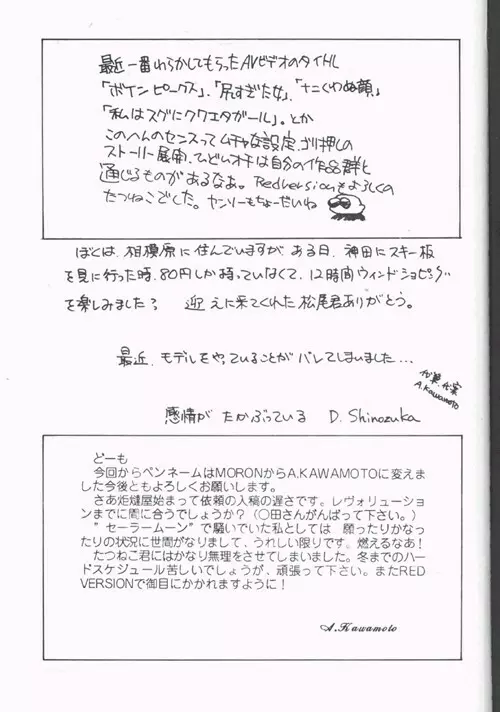 最近一番わらかしてもらったAVビデオのタイトル
「ボインピークス」、「尻すぎた女」、「ナニくわぬ顔」
「私はスグにクワエタガール」。とか
このへんのセンスってムチャな設定、ゴリ押しの
ストーリー展開、ひどいオチは自分の作品群と
通じるものがあるなあ。Redversionもよろしくの
たつねこでした。ヤンソーもちょーだいね
ぼくは、相模原に住んでいますが ある日、神田にスキー板
を見に行った時、80円しか持っていなくて、12時間ウィンドショピング
を楽しみました? 迎えに来てくれた松尾君ありがとう。
最近、モデルをやっていることがバレてしまいました...
代筆、代字
A.Kawamoto
感情が たかぶっている D. Shinozuka
どーも
今回からペンネームはMORONからA.KAWAMOTOに変えま
した今後ともよろしくお願いします。
さあ炬燵屋始まって依頼の入稿の遅さです。レヴォリューショ
ンまでに間に合うでしょうか?(〇田さんがんばって下さい。)
"セーラームーン"で騒いでいた私としては 願ったりかなっ
たりの状況に世間がなりまして、うれしい限りです。燃えるなあ!
たつねこ君にはかなり無理をさせてしまいました。冬までのハー
ドスケジュール苦しいでしょうが、頑張って下さい。またRED
VERSIONで御目にかかれますように!
A.Kawamoto